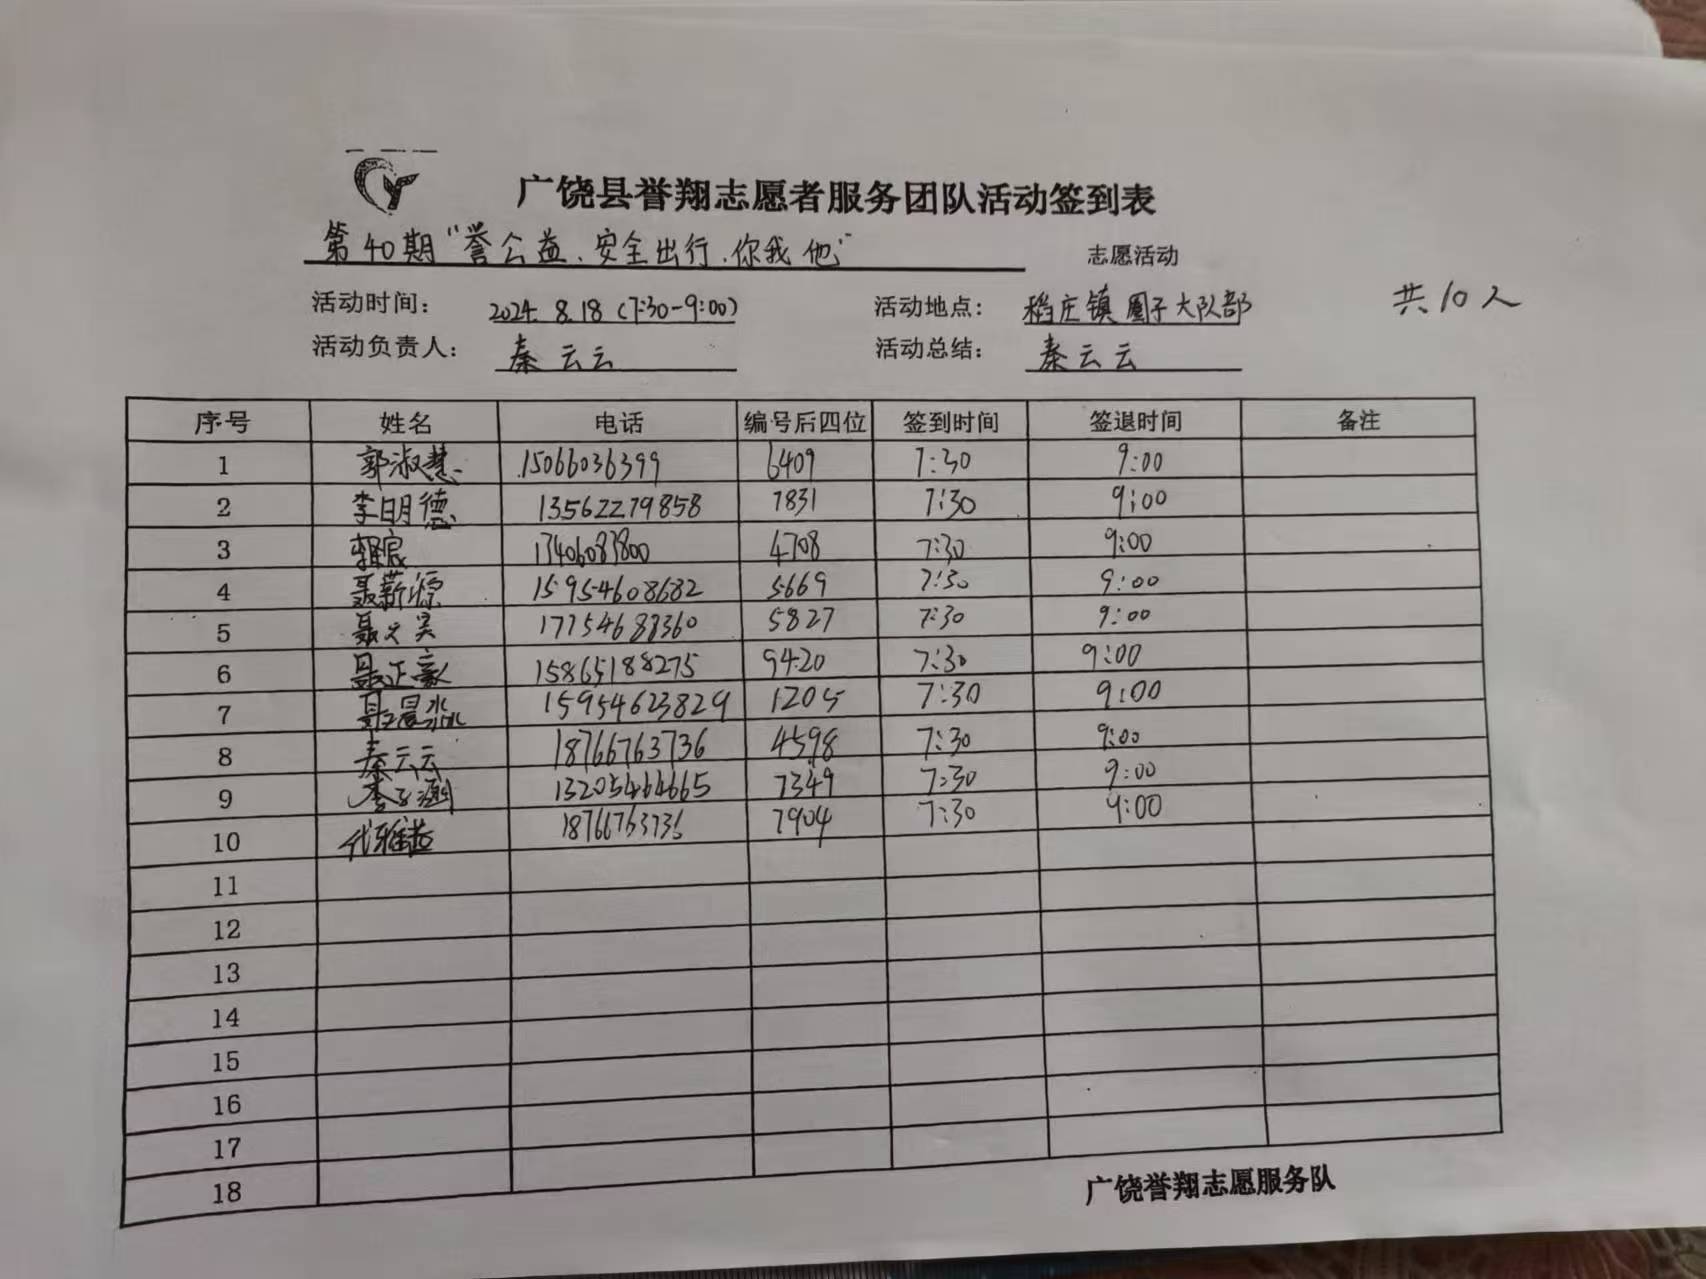 广饶县誉翔志愿者服务团队活动签到表
第40期“誉公益、安全出行、你我他” 志愿活动
活动时间： 2024.8.18（7:30-9:00） 活动地点： 稻庄镇圈子大队部 共10人
活动负责人： 秦云云 活动总结： 秦云云
序号 姓名 电话 编号后四位 签到时间 签退时间 备注
1 郭淑慧 15066036399 6409 7:30 9:00
2 李明德 13562279858 7831 7:30 9:00
3 13406083800 4708 7:30 9:00
4 聂薪 15954608682 5669 7:30 9:00
5 聂 17754688360 5827 7:30 9:00
6 聂正豪 15865188275 9420 7:30 9:00
7 聂晨 15954623829 1205 7:30 9:00
8 秦云云 18766763736 4598 7:30 9:00
9 李子涵 13205464665 7349 7:30 9:00
10 代雅 18766763736 7904 7:30 9:00
11
12
13
14
15
16
17
18
广饶誉翔志愿服务队